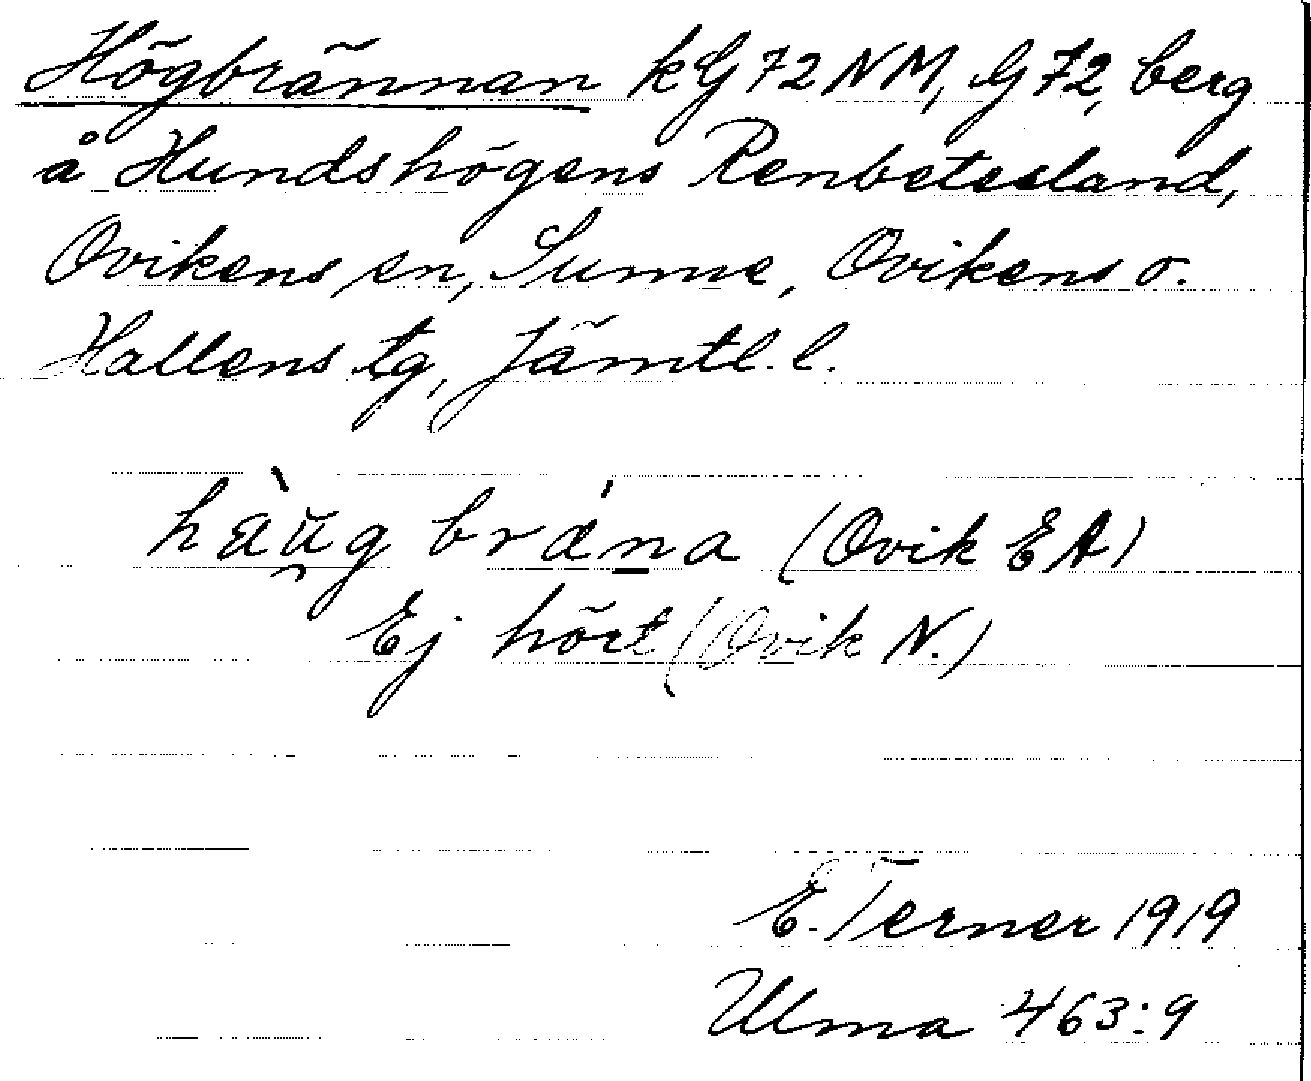 Högbrännan kG72NM, G72, berg
å Hundshögens Renbetesland,
Ovikens sn, Sunne, Ovikens o.
Hallens tg, Jämtl. l.
hàu̯g brána (Ovik EA)
Ej hört (Ovik N.)
E. Terner 1919
Ulma 463:9